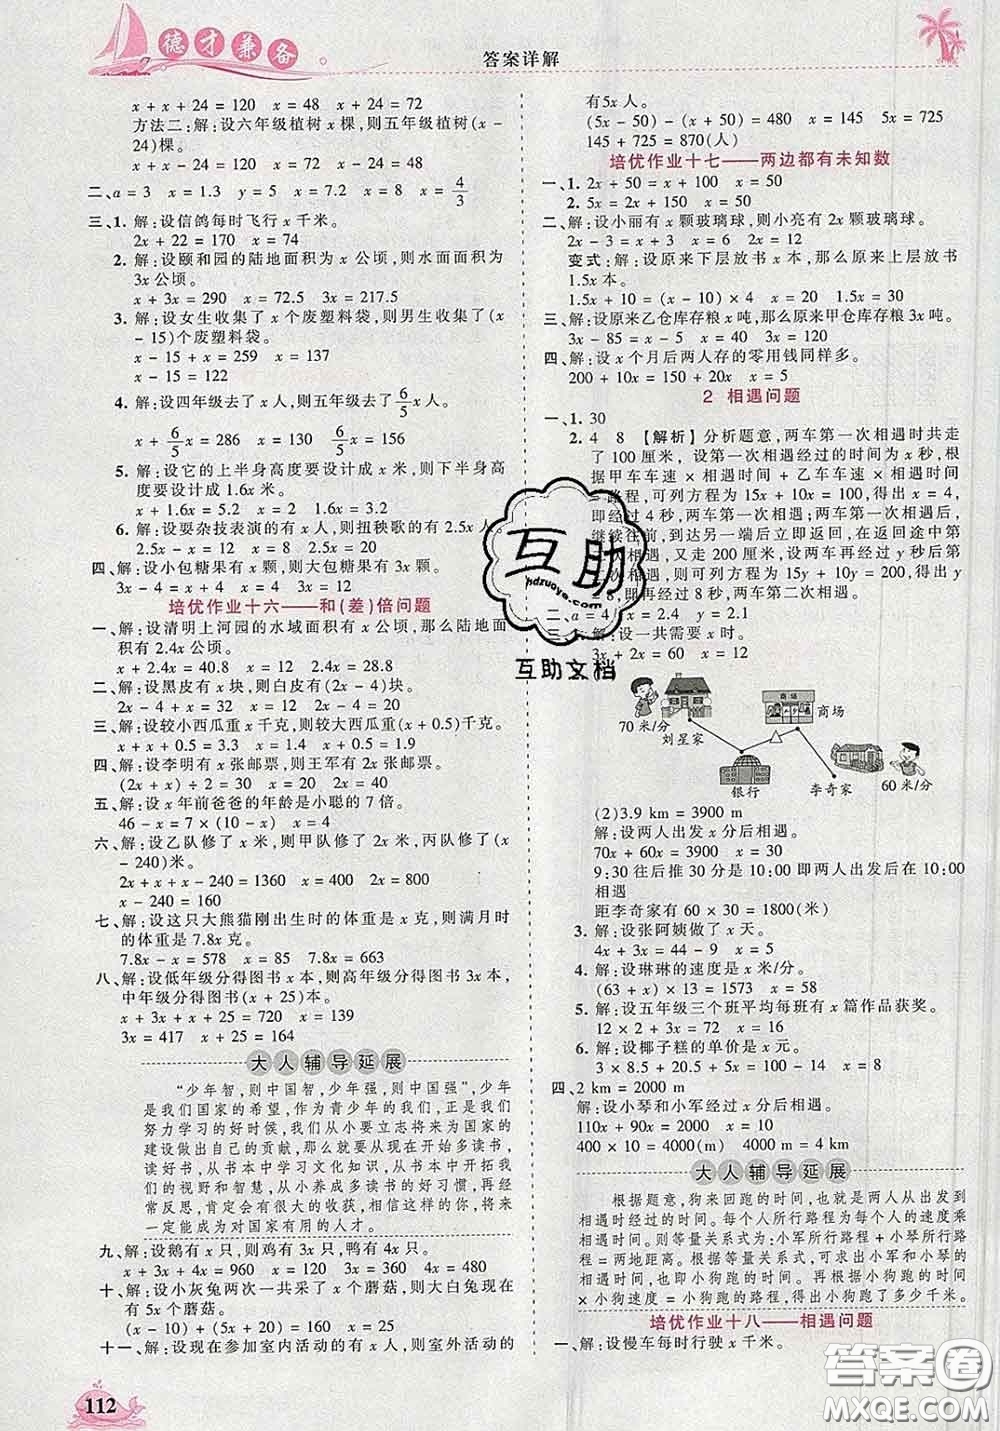 德才兼备
答案详解
x + x + 24 = 120  x = 48  x + 24 = 72
方法二:解:设六年级植树 x 棵,则五年级植树(x -
24)棵。
x + x - 24 = 120  x = 72  x - 24 = 48
二、a = 3  x = 1.3  y = 5  x = 7.2  x = 8  x = 4/3
三、1. 解:设信鸽每时飞行 x 千米。
2x + 22 = 170  x = 74
2. 解:设颐和园的陆地面积为 x 公顷,则水面面积为
3x 公顷。
x + 3x = 290  x = 72.5  3x = 217.5
3. 解:设女生收集了 x 个废塑料袋,则男生收集了(x
- 15)个废塑料袋。
x - 15 + x = 259  x = 137
x - 15 = 122
4. 解:设四年级去了 x 人,则五年级去了 6/5 x 人。
x + 6/5 x = 286  x = 130  6/5 x = 156
5. 解:设它的上半身高度要设计成 x 米,则下半身高
度要设计成 1.6x 米。
x + 1.6x = 5.2  x = 2
6. 解:设耍杂技表演的有 x 人,则扭秧歌的有 2.5x 人。
2.5x - x = 12  x = 8  2.5x = 20
四、解:设小包糖果有 x 颗,则大包糖果有 3x 颗。
3x - 4 = x + 4  x = 4  3x = 12
培优作业十六——和(差)倍问题
一、解:设清明上河园的水域面积有 x 公顷,那么陆地面
积有 2.4x 公顷。
x + 2.4x = 40.8  x = 12  2.4x = 28.8
二、解:设黑皮有 x 块,则白皮有(2x - 4)块。
2x - 4 + x = 32  x = 12
三、解:设较小西瓜重 x 千克,则较大西瓜重(x + 0.5)千克。
x + x + 0.5 = 3.3  x = 1.4  x + 0.5 = 1.9
四、解:设李明有 x 张邮票,则王军有 2x 张邮票。
(2x + x) ÷ 2 = 30  x = 20  2x = 40
五、解:设 x 年前爸爸的年龄是小聪的 7 倍。
46 - x = 7 × (10 - x)  x = 4
六、解:设乙队修了 x 米,则甲队修了 2x 米,丙队修了
(x - 240)米。
2x + x + x - 240 = 1360  x = 400  2x = 800
x - 240 = 160
七、解:设这只大熊猫刚出生时的体重是 x 克,则满月时
的体重是 7.8x 克。
7.8x - x = 578  x = 85  7.8x = 663
八、解:设低年级分得图书 x 本,则高年级分得图书 3x 本,
中年级分得图书(x + 25)本。
x + 3x + x + 25 = 720  x = 139
3x = 417  x + 25 = 164
大人辅导延展
“少年智,则中国智,少年强,则中国强”,少年
是我们国家的希望,作为青少年的我们,正是我们
努力学习的好时候,我们从小要立志将来为国家的
建设做出自己的贡献,那么现在开始多读书,
读好书,从书本中学习文化知识,从书本中开拓我
们的视野和智慧,从小养成多读书的好习惯,再经
常反思,肯定会有很大的收获,相信你们,将来一
定能成为对国家有用的人才。
九、解:设鹅有 x 只,则鸡有 3x 只,鸭有 4x 只。
x + 3x + 4x = 960  x = 120  3x = 360  4x = 480
十、解:设小灰兔两次一共采了 x 个蘑菇,则大白兔现在
有 5x 个蘑菇。
(x + 5x) × 2 = 900  x = 75  5x = 375
十一、解:设现在参加室内活动的有 x 人,则室外活动的
112
有5x 人。
(5x - 50) - (x + 50) = 480  x = 145  5x = 725
145 + 725 = 870(人)
培优作业十七——两边都有未知数
一、1. 2x + 50 = x + 100  x = 50
2. 5x = 2x + 150  x = 50
二、解:设小丽有 x 颗玻璃球,则小亮有 2x 颗玻璃球。
2x - 3 = x + 3  x = 6  2x = 12
变式:解:设原来下层放书 x 本,那么原来上层放书
1.5x 本。
1.5x + 10 = (x - 10) × 4  x = 20  1.5x = 30
三、解:设原来乙仓库存粮 x 吨,那么原来甲仓库存粮 3x 吨。
3x - 85 = x - 5  x = 40  3x = 120
四、解:设 x 个月后两人存的零用钱同样多。
200 + 10x = 150 + 20x  x = 5
2 相遇问题
一、1. 30
2. 4  8 【解析】分析题意,两车第一次相遇时共走
了 100 厘米,设第一次相遇经过的时间为 x 秒,根
据甲车车速 × 相遇时间 + 乙车车速 × 相遇时间
= 路程,可列方程为 15x + 10x = 100,得出 x = 4,
即经过 4 秒,两车第一次相遇。第一次相遇后两车
继续往前,到达另一端后立即返回,在返回途中第
二次相遇,又走 200 厘米,设两车再经过 y 秒后第
二次相遇,可列方程为 15y + 10y = 200,得出 y =
8,即再经过 8 秒,两车第二次相遇。
二、a = 4  x = 2.4  y = 2.1
三、1. 解:设一共需要 x 时。
3x + 2x = 60  x = 12
70 米/分
刘星家
商场
商场
银行
李奇家
60 米/分
(2)3.9 km = 3900 m
解:设两人出发 x 分后相遇。
70x + 60x = 3900  x = 30
9:30 往后推 30 分是 10:00 即两人出发后在 10:00
相遇
距李奇家有 60 × 30 = 1800(米)
3. 解:设张阿姨做了 x 天。
4x + 3x = 44 - 9  x = 5
4. 解:设琳琳的速度是 x 米/分。
(63 + x) × 13 = 1573  x = 58
5. 解:设五年级三个班平均每班有 x 篇作品获奖。
12 × 2 + 3x = 48  x = 8
6. 解:设椰子糕的单价是 x 元。
3 × 8.5 + 2x = 20 × 2 + 1.5  x = 8
四、2 km = 2000 m
解:设小琴和小军经过 x 分后相遇。
110x + 90x = 2000  x = 10
400 × 10 = 4000(m)  4000 m = 4 km
大人辅导延展
根据题意,狗来回跑的时间,也就是两人从出发到
相遇时经过的时间。每个人所行路程是各自的速度乘
相遇时间。则等量关系式为:小军所行路程 + 小琴所行路
程 = 两地距离。根据等量关系式,可求出小军和小琴的相
遇时间,也即小狗跑的时间。再根据小狗跑的时间
× 小狗速度 = 小狗跑的路程,得出小狗跑了多少千米。
培优作业十八——相遇问题
一、解:设慢车每时行驶 x 千米。
互助
hdzuoye.com
互助文档
答案圈
MXQE.COM